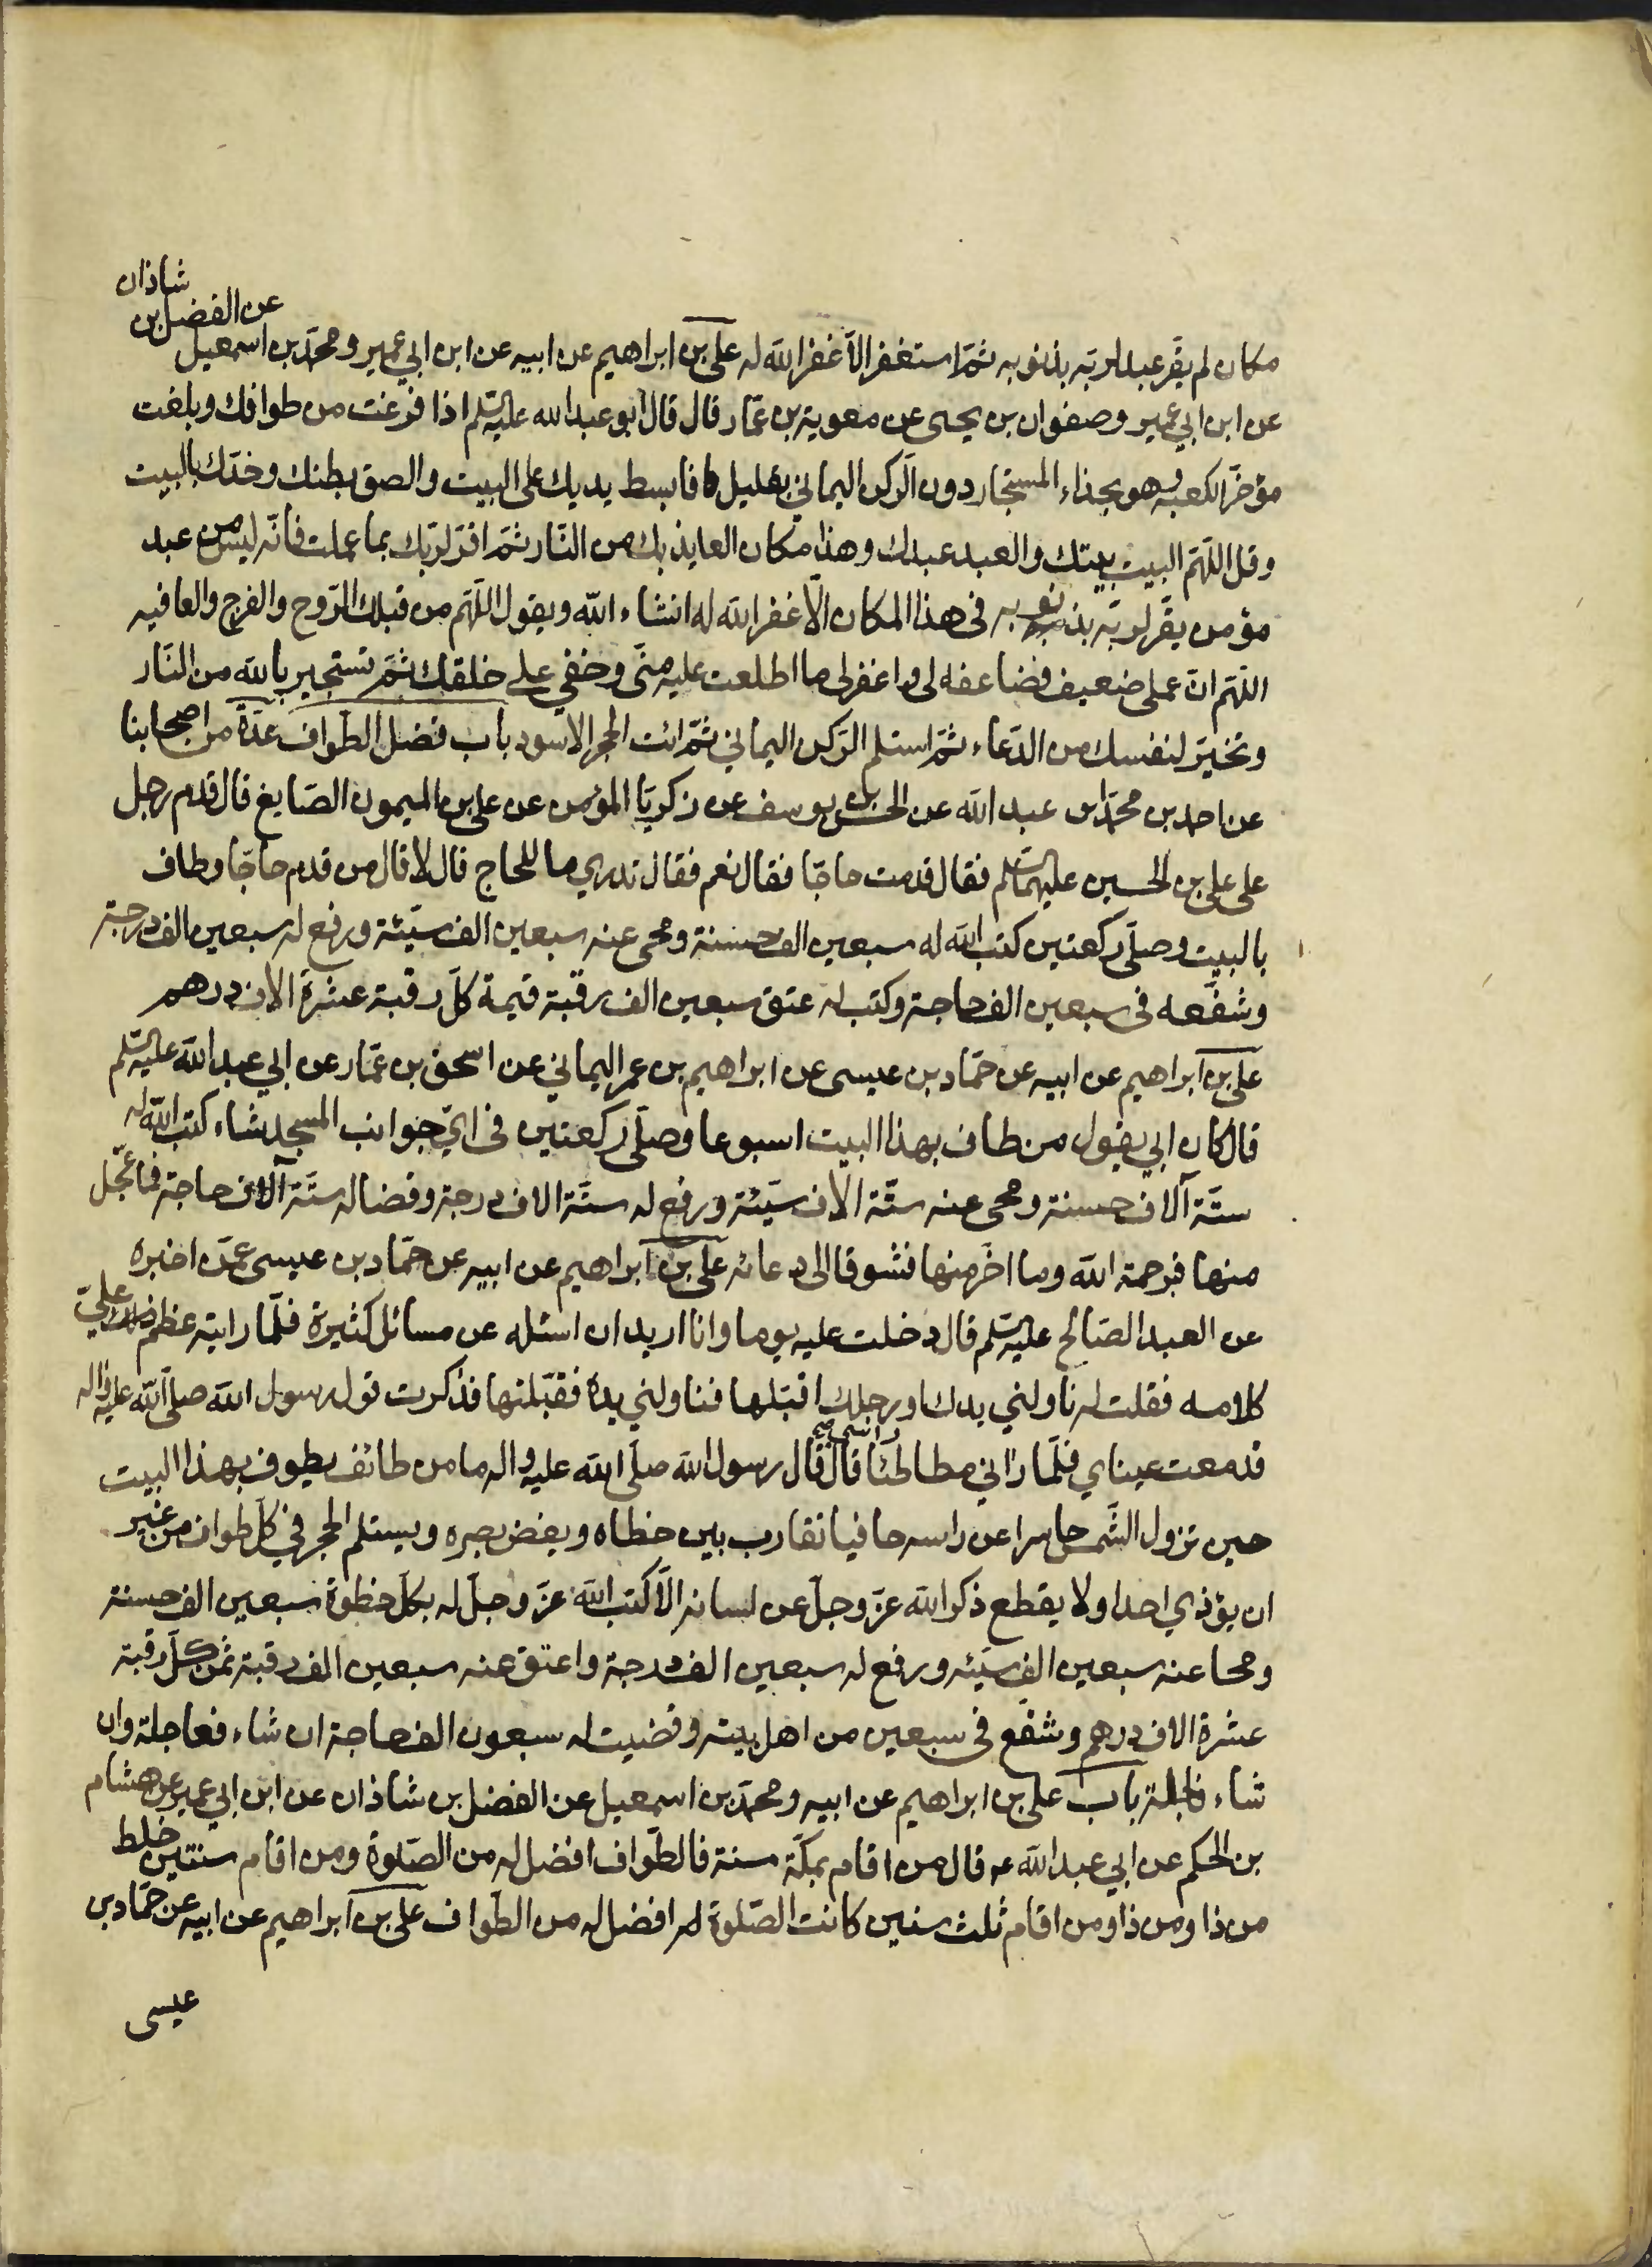 مكان لم يقر عبد لربّه بذنوبه ثمّ استغفر الاّ غفر الله له علي بن ابراهيم عن ابيه عن ابن ابي عمير ومحمّد بن اسمعيل عن الفضل بن شاذان
عن ابن ابي عمير وصفوان بن يحيى عن معوية بن عمّار قال قال ابو عبد الله عليه السلم اذا فرغت من طوافك وبلغت
مؤخّر الكعبه وهو بحذاء المستجار دون الركن اليماني بقليل فابسط يديك على البيت والصق بطنك وخدّك بالبيت
وقل اللّهمّ البيت بيتك والعبد عبدك وهذا مكان العايذ بك من النّار ثمّ اقرّ لربّك بما عملت فانّه ليس من عبد
مؤمن يقرّ لربّه بذنوبه فى هذا المكان الاّ غفر الله له انشاء الله ويقول اللّهم من قبلك الرّوح والفرج والعافيه
اللّهم انّ عملى ضعيف فضاعفه لى واغفر لى ما اطلعت عليه منّى وخفي على خلقك ثمّ تستجير بالله من النّار
وتخيّر لنفسك من الدّعاء ثمّ استلم الرّكن اليماني ثمّ ائت الحجر الاسود باب فضل الطواف عدّة من اصحابنا
عن احمد بن محمّد بن عبد الله عن الحسن بن يوسف عن زكريّا المؤمن عن علي بن الميمون الصّايغ قال قدم رجل
على علي بن الحسين عليهما السلم فقال قدمت حاجّا فقال نعم فقال تدري ما للحاج قال لا قال من قدم حاجّا وطاف
بالبيت وصلّى ركعتين كتب الله له سبعين الف حسنة ومحى عنه سبعين الف سيّئة ورفع له سبعين الف درجة
وشفّعه فى سبعين الف حاجة وكتب له عتق سبعين الف رقبة قيمة كلّ رقبة عشرة الاف درهم
علي بن ابراهيم عن ابيه عن حمّاد بن عيسى عن ابراهيم بن عمر اليماني عن اسحق بن عمّار عن ابي عبد الله عليه السلم
قال كان ابي يقول من طاف بهذا البيت اسبوعا وصلّى ركعتين فى ايّ جوانب المسجد شاء كتب الله له
ستّة آلاف حسنة ومحى عنه ستّة الاف سيّئة ورفع له ستّة الاف درجة وقضا له ستّة آلاف حاجة فما عجّل
منها فبرحمة الله وما اخّر منها فشوقا الى دعائه علي بن ابراهيم عن ابيه عن حمّاد بن عيسى عمّن اخبره
عن العبد الصّالح عليه السلم قال دخلت عليه يوما وانا اريد ان اسئله عن مسائل كثيرة فلمّا رايته عظم علىّ
كلامه فقلت له ناولني يدك او رجلك اقبّلها فناولني يده فقبّلتها فذكرت قول رسول الله صلى الله عليه واله
فدمعت عيناي فلمّا راني مطاطئا راسى قال قال رسول الله صلّى الله عليه واله ما من طائف يطوف بهذا البيت
حين تزول الشّمس حاسرا عن راسه حافيا تقارب بين خطاه ويغض بصره ويستلم الحجر في كلّ طواف من غير
ان يؤذي احدا ولا يقطع ذكر الله عزّ وجلّ عن لسانه الاّ كتب الله عزّ وجلّ له بكلّ خطوة سبعين الف حسنة
ومحا عنه سبعين الف سيّئه ورفع له سبعين الف درجة واعتق عنه سبعين الف رقبة ثمن كلّ رقبة
عشرة الاف درهم وشفّع فى سبعين من اهل بيته وقضيت له سبعون الف حاجة ان شاء فعاجلة وان
شاء فاجلة باب علي بن ابراهيم عن ابيه ومحمّد بن اسمعيل عن الفضل بن شاذان عن ابن ابي عمير عن هشام
بن الحكم عن ابي عبد الله عه قال من اقام بمكّة سنة فالطّواف افضل له من الصّلوة ومن اقام سنتين خلط
من ذا ومن ذا ومن اقام ثلث سنين كانت الصّلوة له افضل له من الطّواف علي بن ابراهيم عن ابيه عن حمّاد بن
عيسى